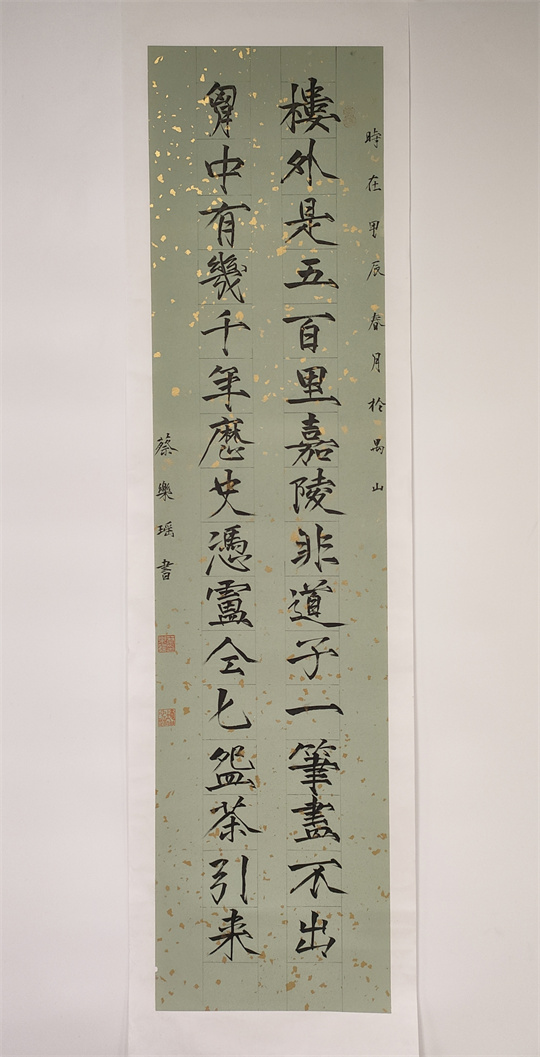 時在甲辰春月於禺山
樓外是五百里嘉陵非道子一筆畫不出
胷中有幾千年歷史憑盧仝七盌茶引来
蔡樂瑶書